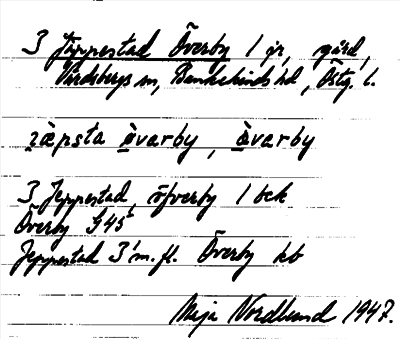 3 Jeppestad Överby 1 gr, gård,
Vårdsbergs sn, Bankekinds hd, Östg. l.
ɿὰpsta ὰvarby, ὰvarby
3 Jeppestad, öfverby 1 bek
Överby G45
Jeppestad 3¹ m. fl. Överby kb
Maja Nordlund 1947.